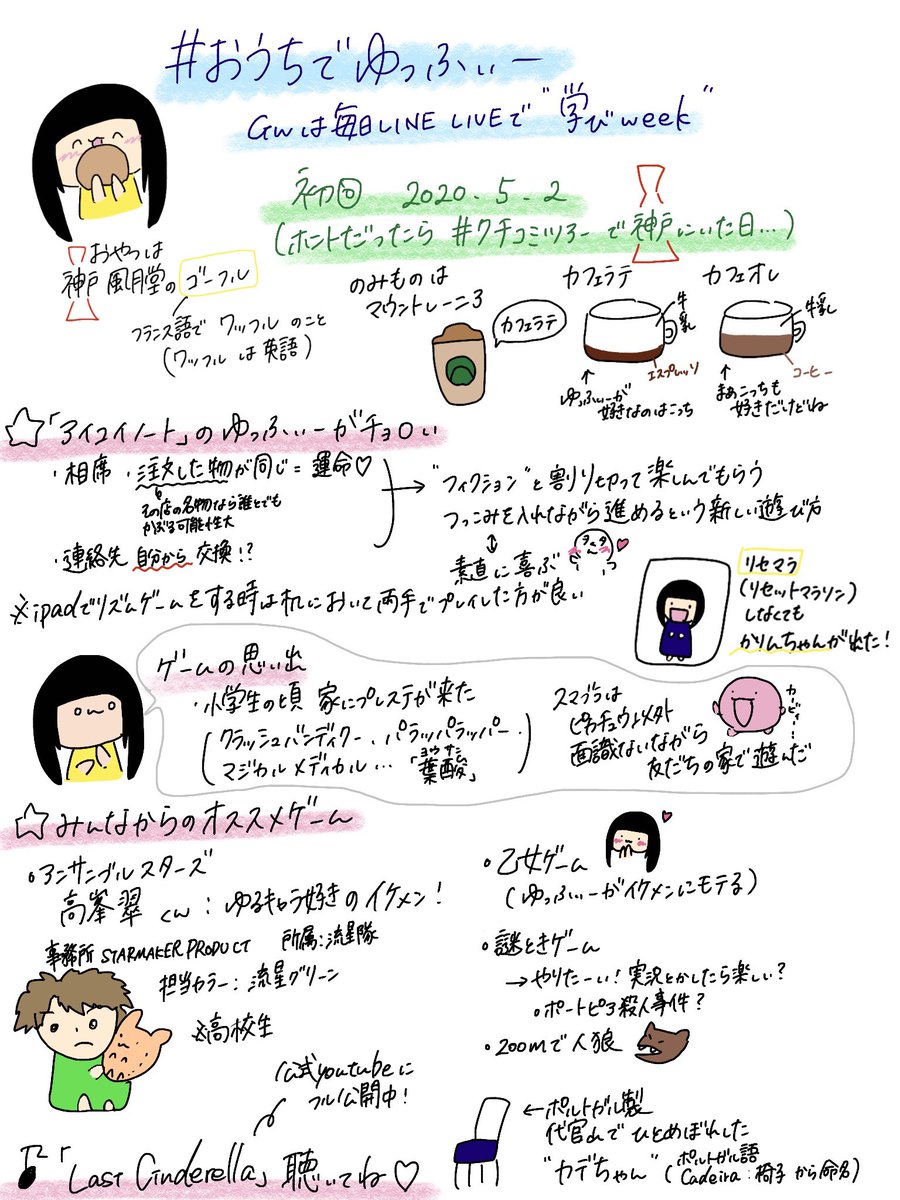 #おうちでゆっふぃー
GWは毎日LINE LIVEで"学びweek"
初回 2020.5.2
(ホントだったら #クチコミツアーで神戸にいた日…)
おやつは
神戸風月堂のゴーフル
フランス語でワッフルのこと
(ワッフルは英語)
のみものは
マウントレーニア
カフェラテ
カフェラテ
牛乳
エスプレッソ
↑
ゆっふぃーが
好きなのはこっち
カフェオレ
牛乳
コーヒー
↑
まあこっちも
好きだけどね
☆「アイコイノート」のゆっふぃーがチョロい
・相席・注文した物が同じ=運命♡
その店の名物なら誰とでも
かぶる可能性大
・連絡先 自分から 交換!?
→"フィクション"と割り切って楽しんでもらう
つっこみを入れながら進めるという新しい遊び方
↕
素直に喜ぶ
ヲタ
※ipadでリズムゲームをする時は机において両手でプレイした方が良い
リセマラ
(リセットマラソン)
しなくても
かりんちゃんが出た!
ゲームの思い出
・小学生の頃 家にプレステが来た
(クラッシュバンディクー、パラッパラッパー
マジカルメディカル…「葉酸」)
ヨウサン
スマブラは
ピカチュウとメタト
面識ないながら
友だちの家で遊んだ
カービィー
☆みんなからのオススメゲーム
・アンサンブルスターズ
高峯翠くん:ゆるキャラ好きのイケメン!
事務所 STARMAKER PRODUCT 所属:流星隊
担当カラー:流星グリーン
※高校生
・乙女ゲーム
(ゆっふぃーがイケメンにモテる)
・謎ときゲーム
→やりたーい!実況とかしたら楽しい?
・ポートピア殺人事件?
・zoomで人狼
公式youtubeに
フル公開中!
♪「Last Cinderella」聴いてね♡
←ポルトガル製
代官山でひとめぼれした
"カデちゃん"(ポルトガル語
Cadeira:椅子から命名)